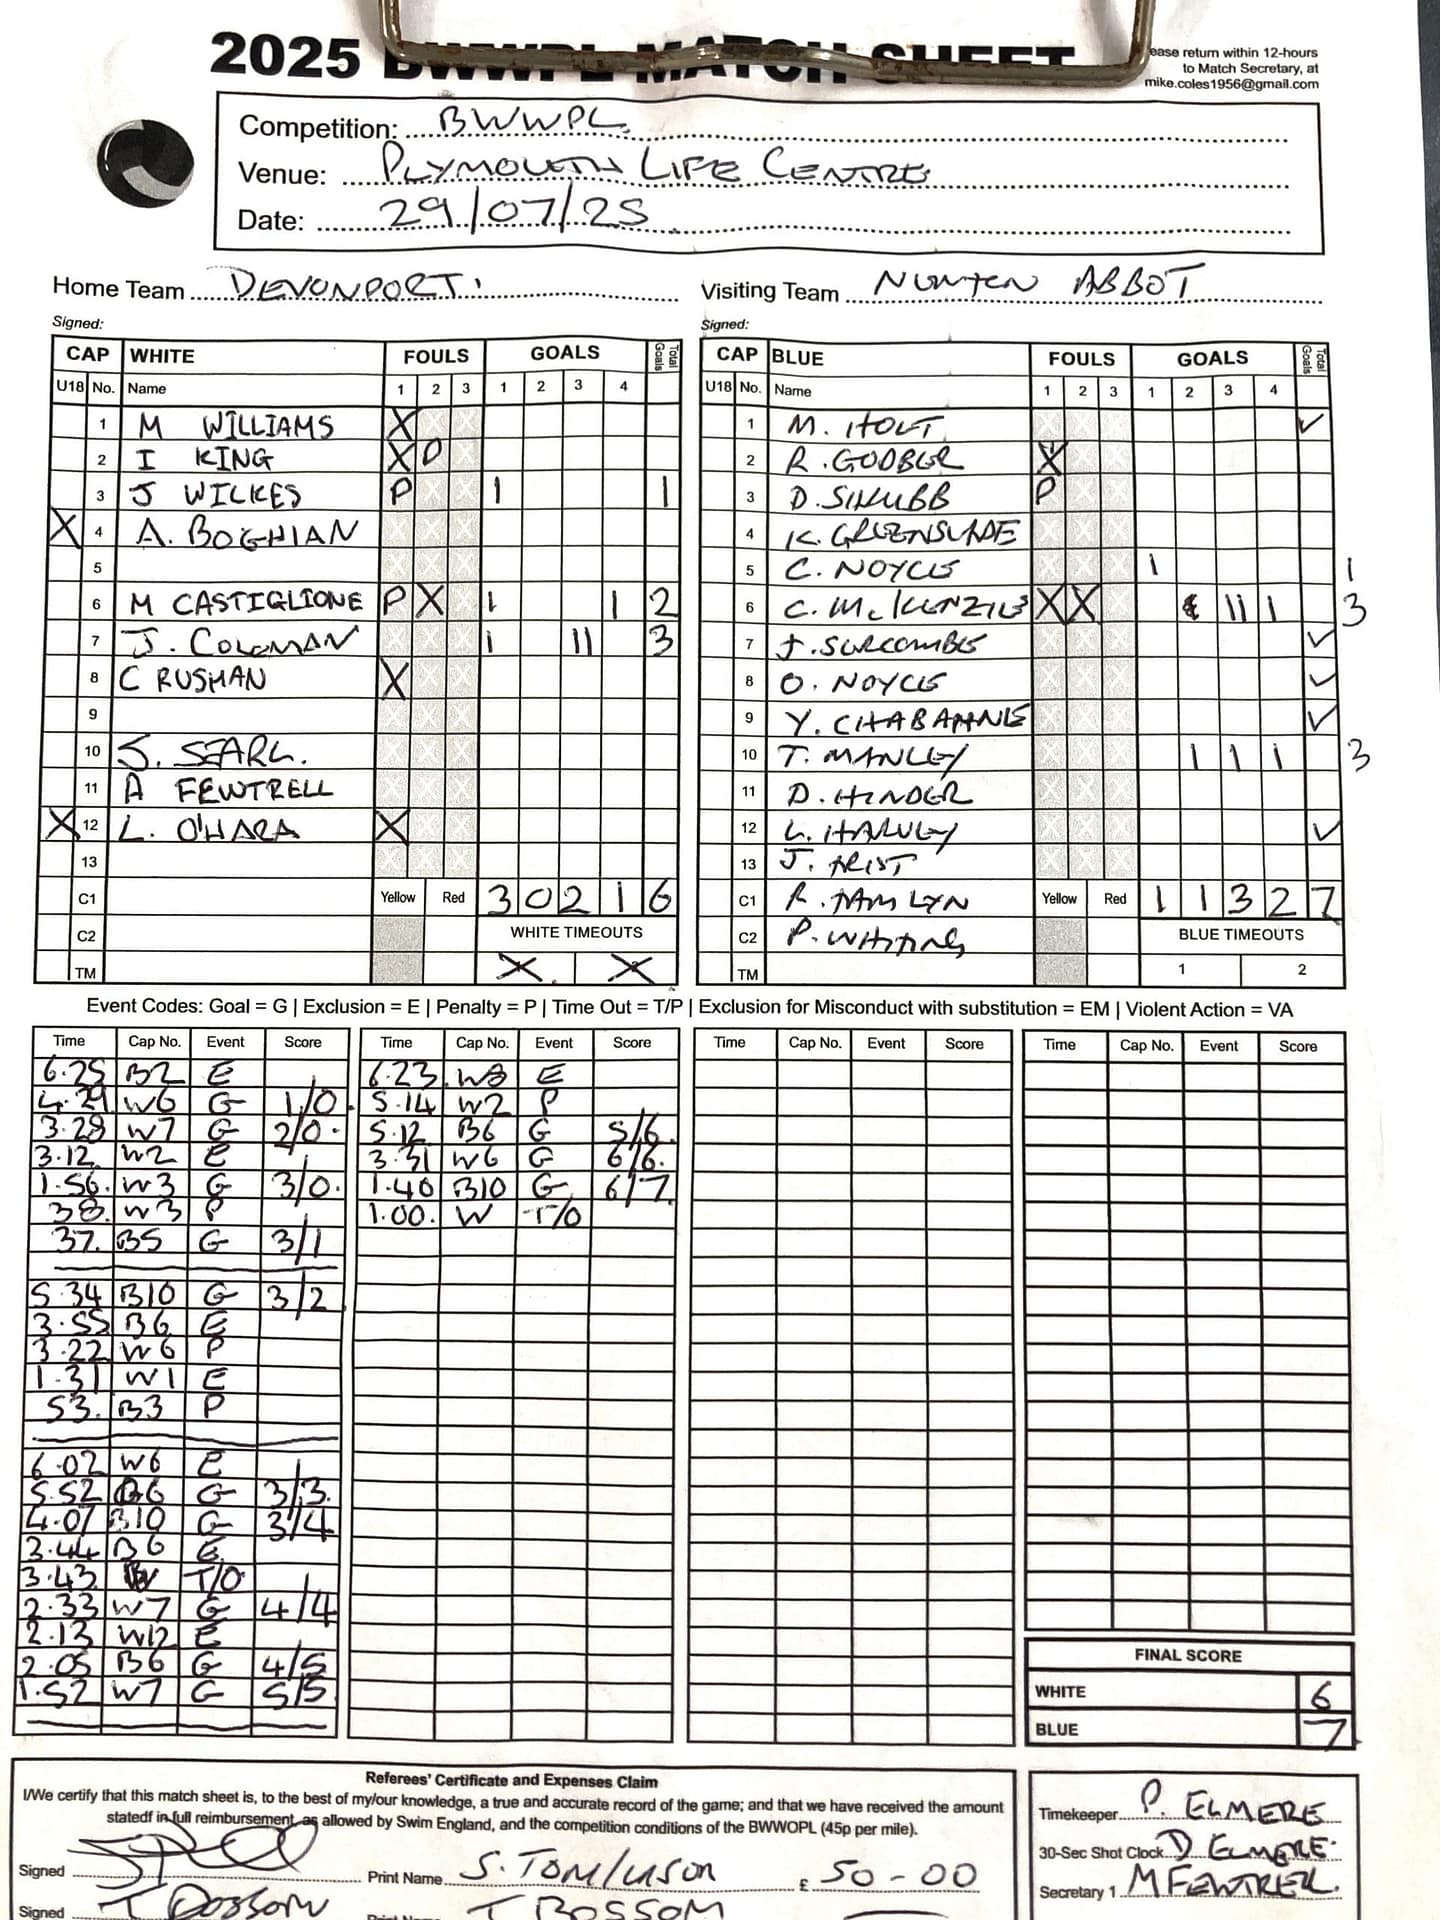 2025 BWWPL MATCH SHEET
ease return within 12-hours
to Match Secretary, at
mike.coles1956@gmail.com
Competition: BWWPL
Venue: PLYMOUTH LIFE CENTRE
Date: 29/07/25
Home Team DEVONPORT
Visiting Team NEWTON ABBOT
Signed:
Signed:
CAP WHITE FOULS GOALS Total Goals
U18 No. Name 1 2 3 1 2 3 4
1 M WILLIAMS X
2 I KING X
3 J WILKES P 1 1
X 4 A. BOGHIAN
5
6 M CASTIGLIONE P X 1 1 2
7 J. COLEMAN 1 11 3
8 C RUSHAN X
9
10 S. SEARL.
11 A FEWTRELL
X 12 L. O'HARA X
13
C1 Yellow Red 3 0 2 1 6
C2 WHITE TIMEOUTS
TM X X
CAP BLUE FOULS GOALS Total Goals
U18 No. Name 1 2 3 1 2 3 4
1 M. HOLT ✓
2 R. GODBER X
3 D. P
4 K. GREENSLADE
5 C. NOYCE 1 1
6 C. McKENZIE X X 11 1 3
7 J. SURCOMBE ✓
8 O. NOYCE ✓
9 Y. CHABAHNE ✓
10 T. MANLEY 1 1 1 3
11 D. HINDER
12 L. HARVEY ✓
13 J. TRIST
C1 R. TAMLYN Yellow Red 1 1 3 2 7
C2 P. WHITING BLUE TIMEOUTS
TM 1 2
Event Codes: Goal = G | Exclusion = E | Penalty = P | Time Out = T/P | Exclusion for Misconduct with substitution = EM | Violent Action = VA
Time Cap No. Event Score
6.25 B2 E
4.29 W6 G 1/0
3.28 W7 G 2/0
3.12 W2 E
1.56 W3 G 3/0
38. W3 P
37. B5 G 3/1
5.34 B10 G 3/2
3.55 B6 E
3.22 W6 P
1.31 W1 E
53. B3 P
6.02 W6 E
5.52 B6 G 3/3
4.07 B10 G 3/4
3.44 B6 E
3.43 W T/O
2.33 W7 G 4/4
2.13 W12 E
2.05 B6 G 4/5
1.52 W7 G 5/5
Time Cap No. Event Score
6.23 W8 E
5.14 W2 P
5.12 B6 G 5/6
3.31 W6 G 6/6
1.40 B10 G 6/7
1.00 W T/O
Time Cap No. Event Score
Time Cap No. Event Score
FINAL SCORE
WHITE 6
BLUE 7
Referees' Certificate and Expenses Claim
I/We certify that this match sheet is, to the best of my/our knowledge, a true and accurate record of the game; and that we have received the amount
statedf in full reimbursement, as allowed by Swim England, and the competition conditions of the BWWOPL (45p per mile).
Signed Print Name S. TOMLINSON £ 50-00
Signed T BOSSOM Print Name T BOSSOM
Timekeeper P. ELMERE
30-Sec Shot Clock D ELMERE
Secretary 1 M FEWTRELL